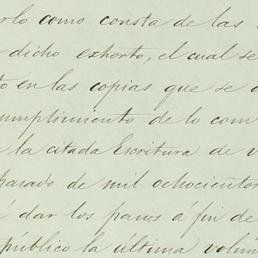 rlo como consta de las
dicho exhorto, el cual se
to en las copias que se
umplimiento de lo com
la citada Escritura de v
pasado de mil ochocientos
é dar los pasos á fin de
público la última volun